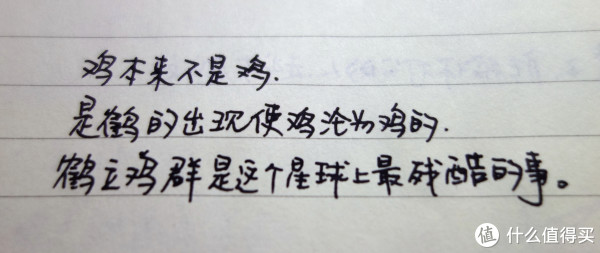 鸡本来不是鸡.
是鹤的出现使鸡沦为鸡的.
鹤立鸡群是这个星球上最残酷的事。
值 什么值得买